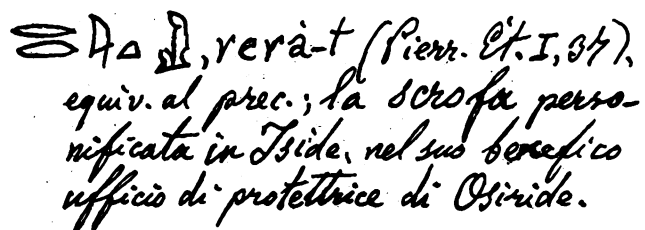 𓂋𓂋𓇋𓏏, verà-t (Pierr. Ét. I, 37),
equiv. al prec.; la scrofa perso-
nificata in Iside, nel suo benefico
ufficio di protettrice di Osiride.